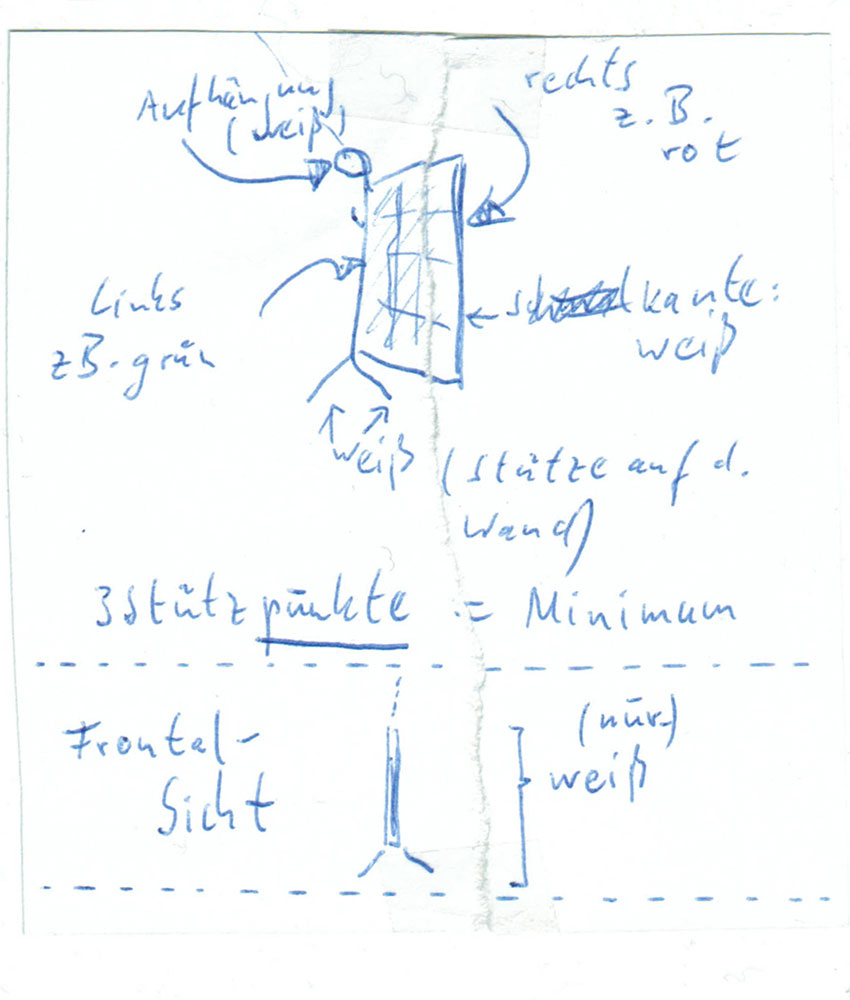 Aufhängung
(weiß)
rechts
z.B.
rot
Links
z.B. grün
kante:
weiß
weiß (Stütze auf d.
Wand)
3 Stützpunkte = Minimum
Frontal-
Sicht
(nur)
weiß